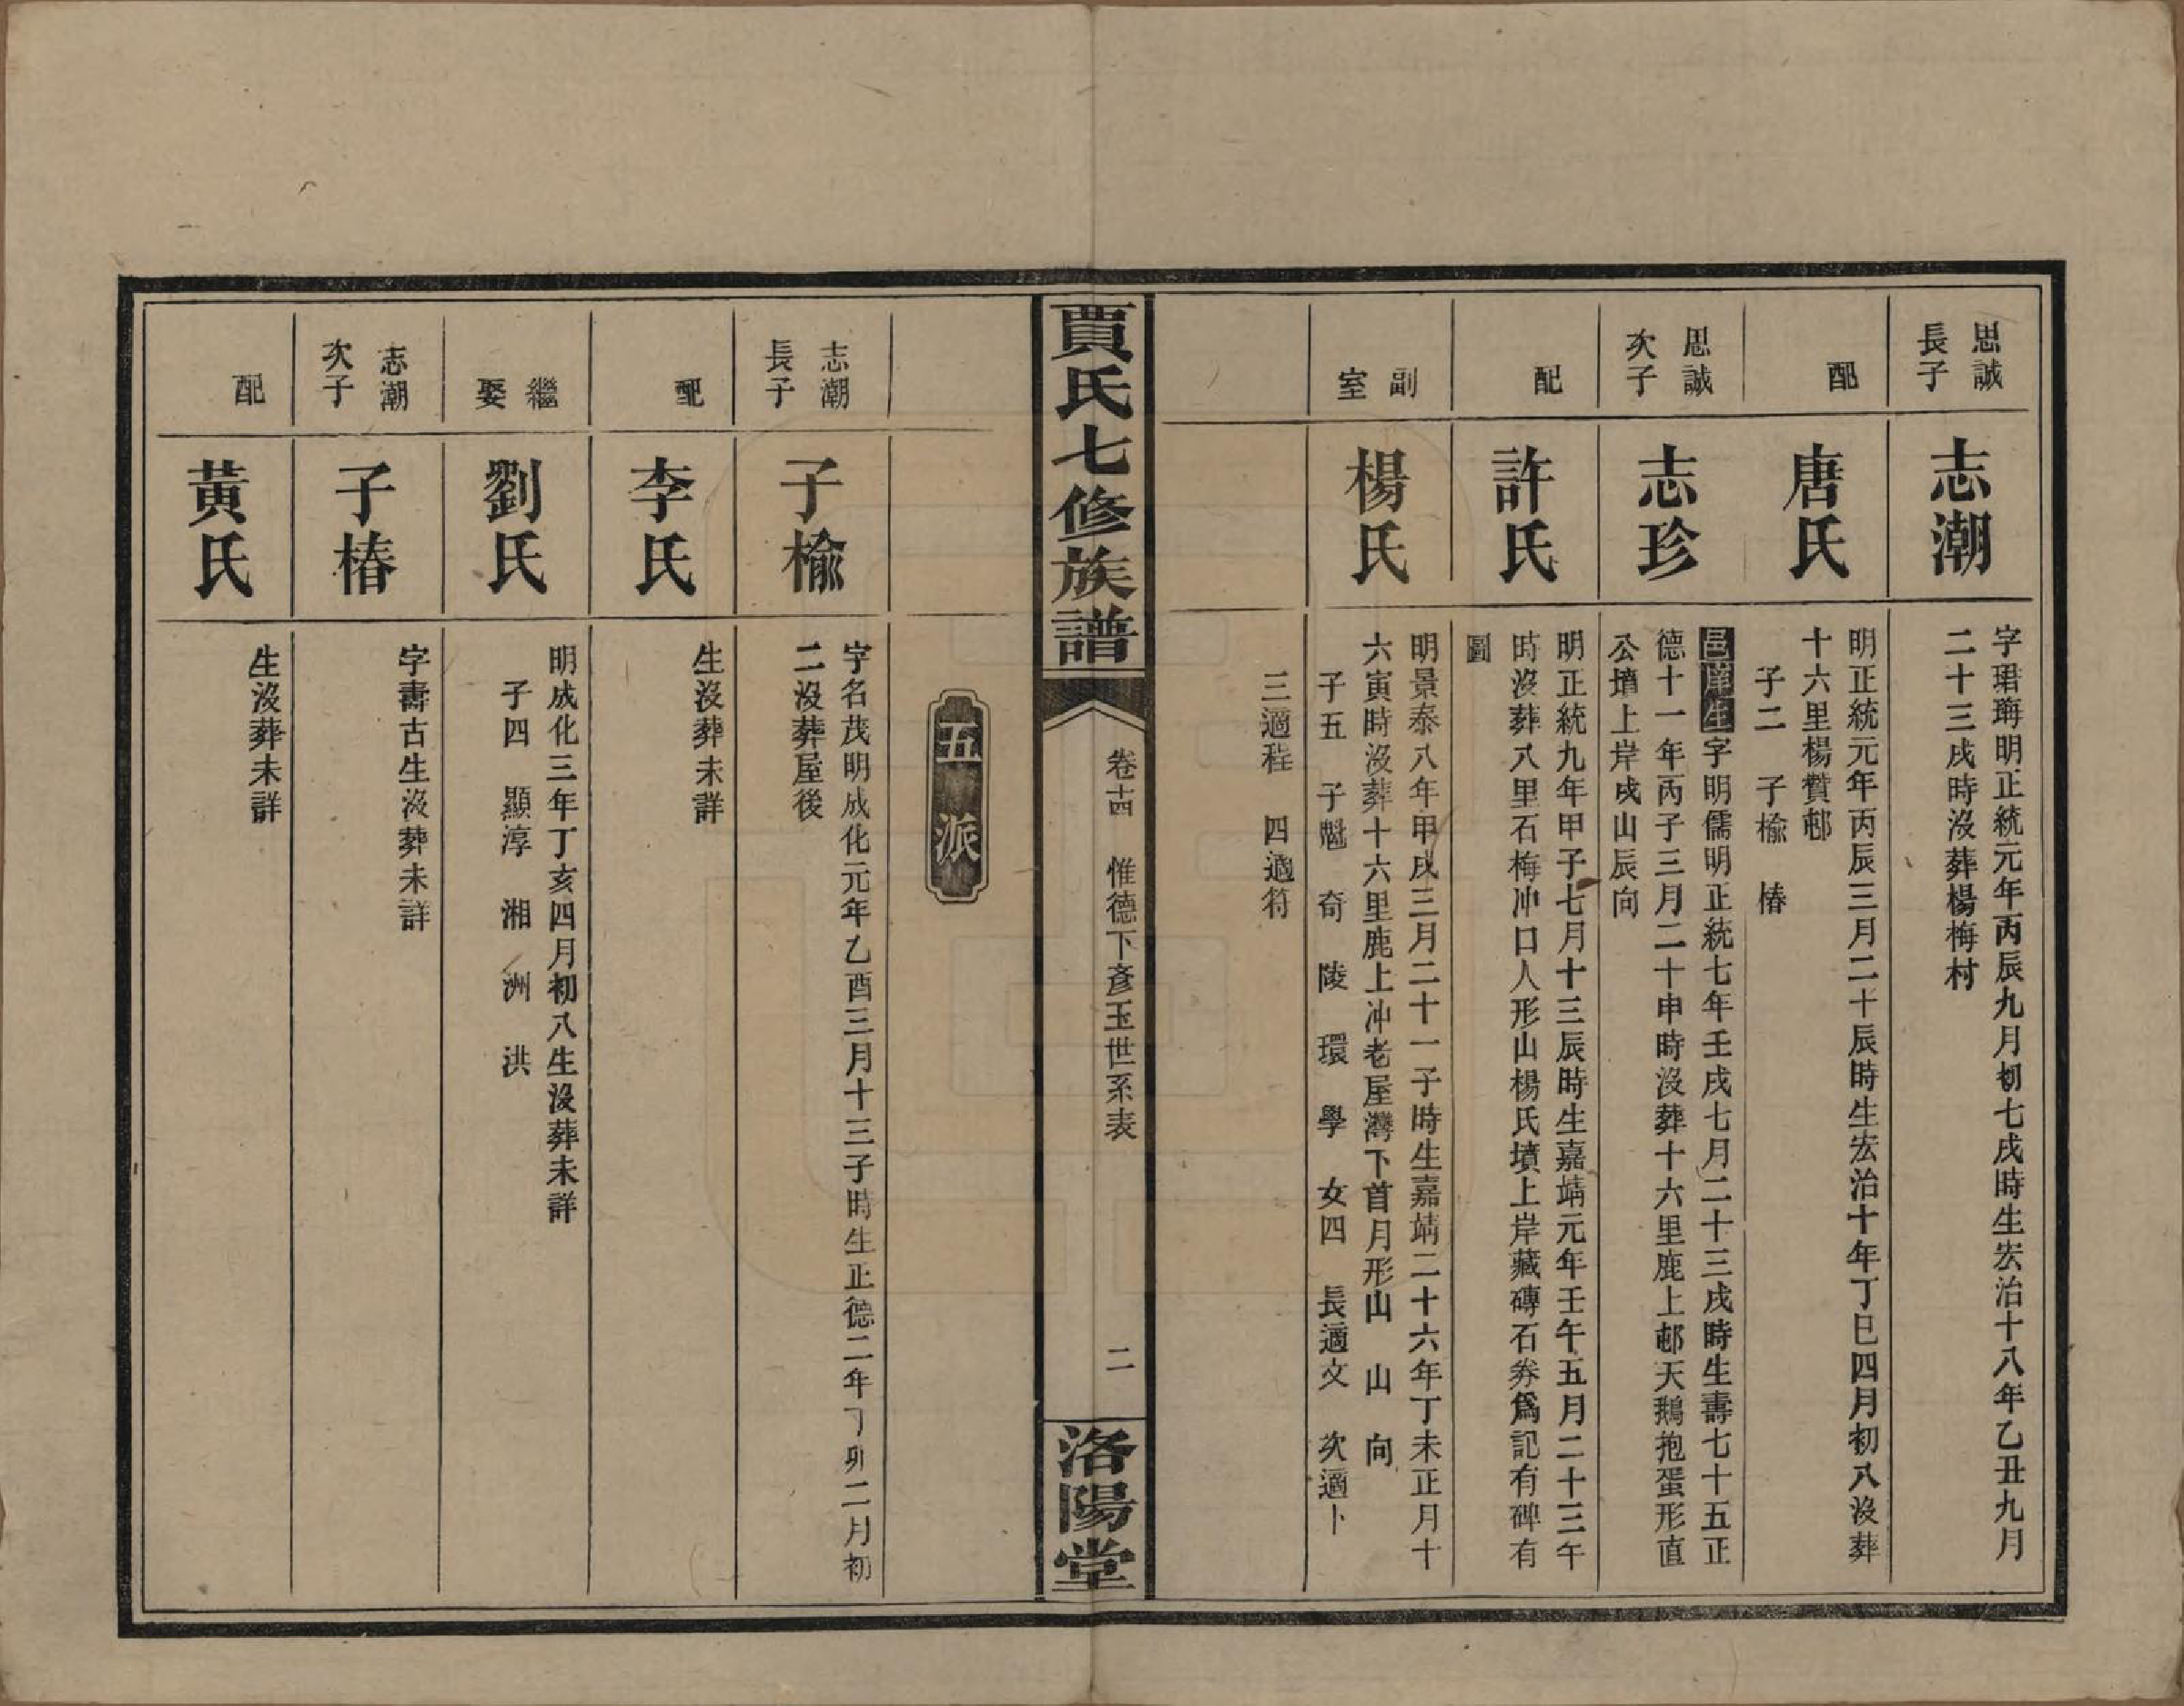 思誠
長子
志潮
字珺瑇明正統元年丙辰九月初七戌時生宏治十八年乙丑九月
二十三戌時沒葬楊梅村
配
唐氏
明正統元年丙辰三月二十辰時生宏治十年丁巳四月初八沒葬
十六里楊贊邨
子二　子楡　椿
思誠
次子
志珍
邑庠生字明儒明正統七年壬戌七月二十三戌時生壽七十五正
德十一年丙子三月二十申時沒葬十六里鹿上邨天鵝抱蛋形直
公墳上岸戌山辰向
配
許氏
明正統九年甲子七月十三辰時生嘉靖元年壬午五月二十三午
時沒葬八里石梅冲口人形山楊氏墳上岸藏磚石券爲記有碑有
圖
副
室
楊氏
明景泰八年甲戌三月二十一子時生嘉靖二十六年丁未正月十
六寅時沒葬十六里鹿上冲老屋灣下首月形山　山　向
子五　子魁　奇　陵　環　學　女四　長適文　次適卜
三適程　四適符
賈氏七修族譜
卷十四　惟德下彥玉世系表
二
洛陽堂
五派
志潮
長子
子楡
字名茂明成化元年乙酉三月十三子時生正德二年丁卯二月初
二沒葬屋後
配
李氏
生沒葬未詳
繼
娶
劉氏
明成化三年丁亥四月初八生沒葬未詳
子四　顯淳　湘　洲　洪
志潮
次子
子椿
字壽古生沒葬未詳
配
黃氏
生沒葬未詳